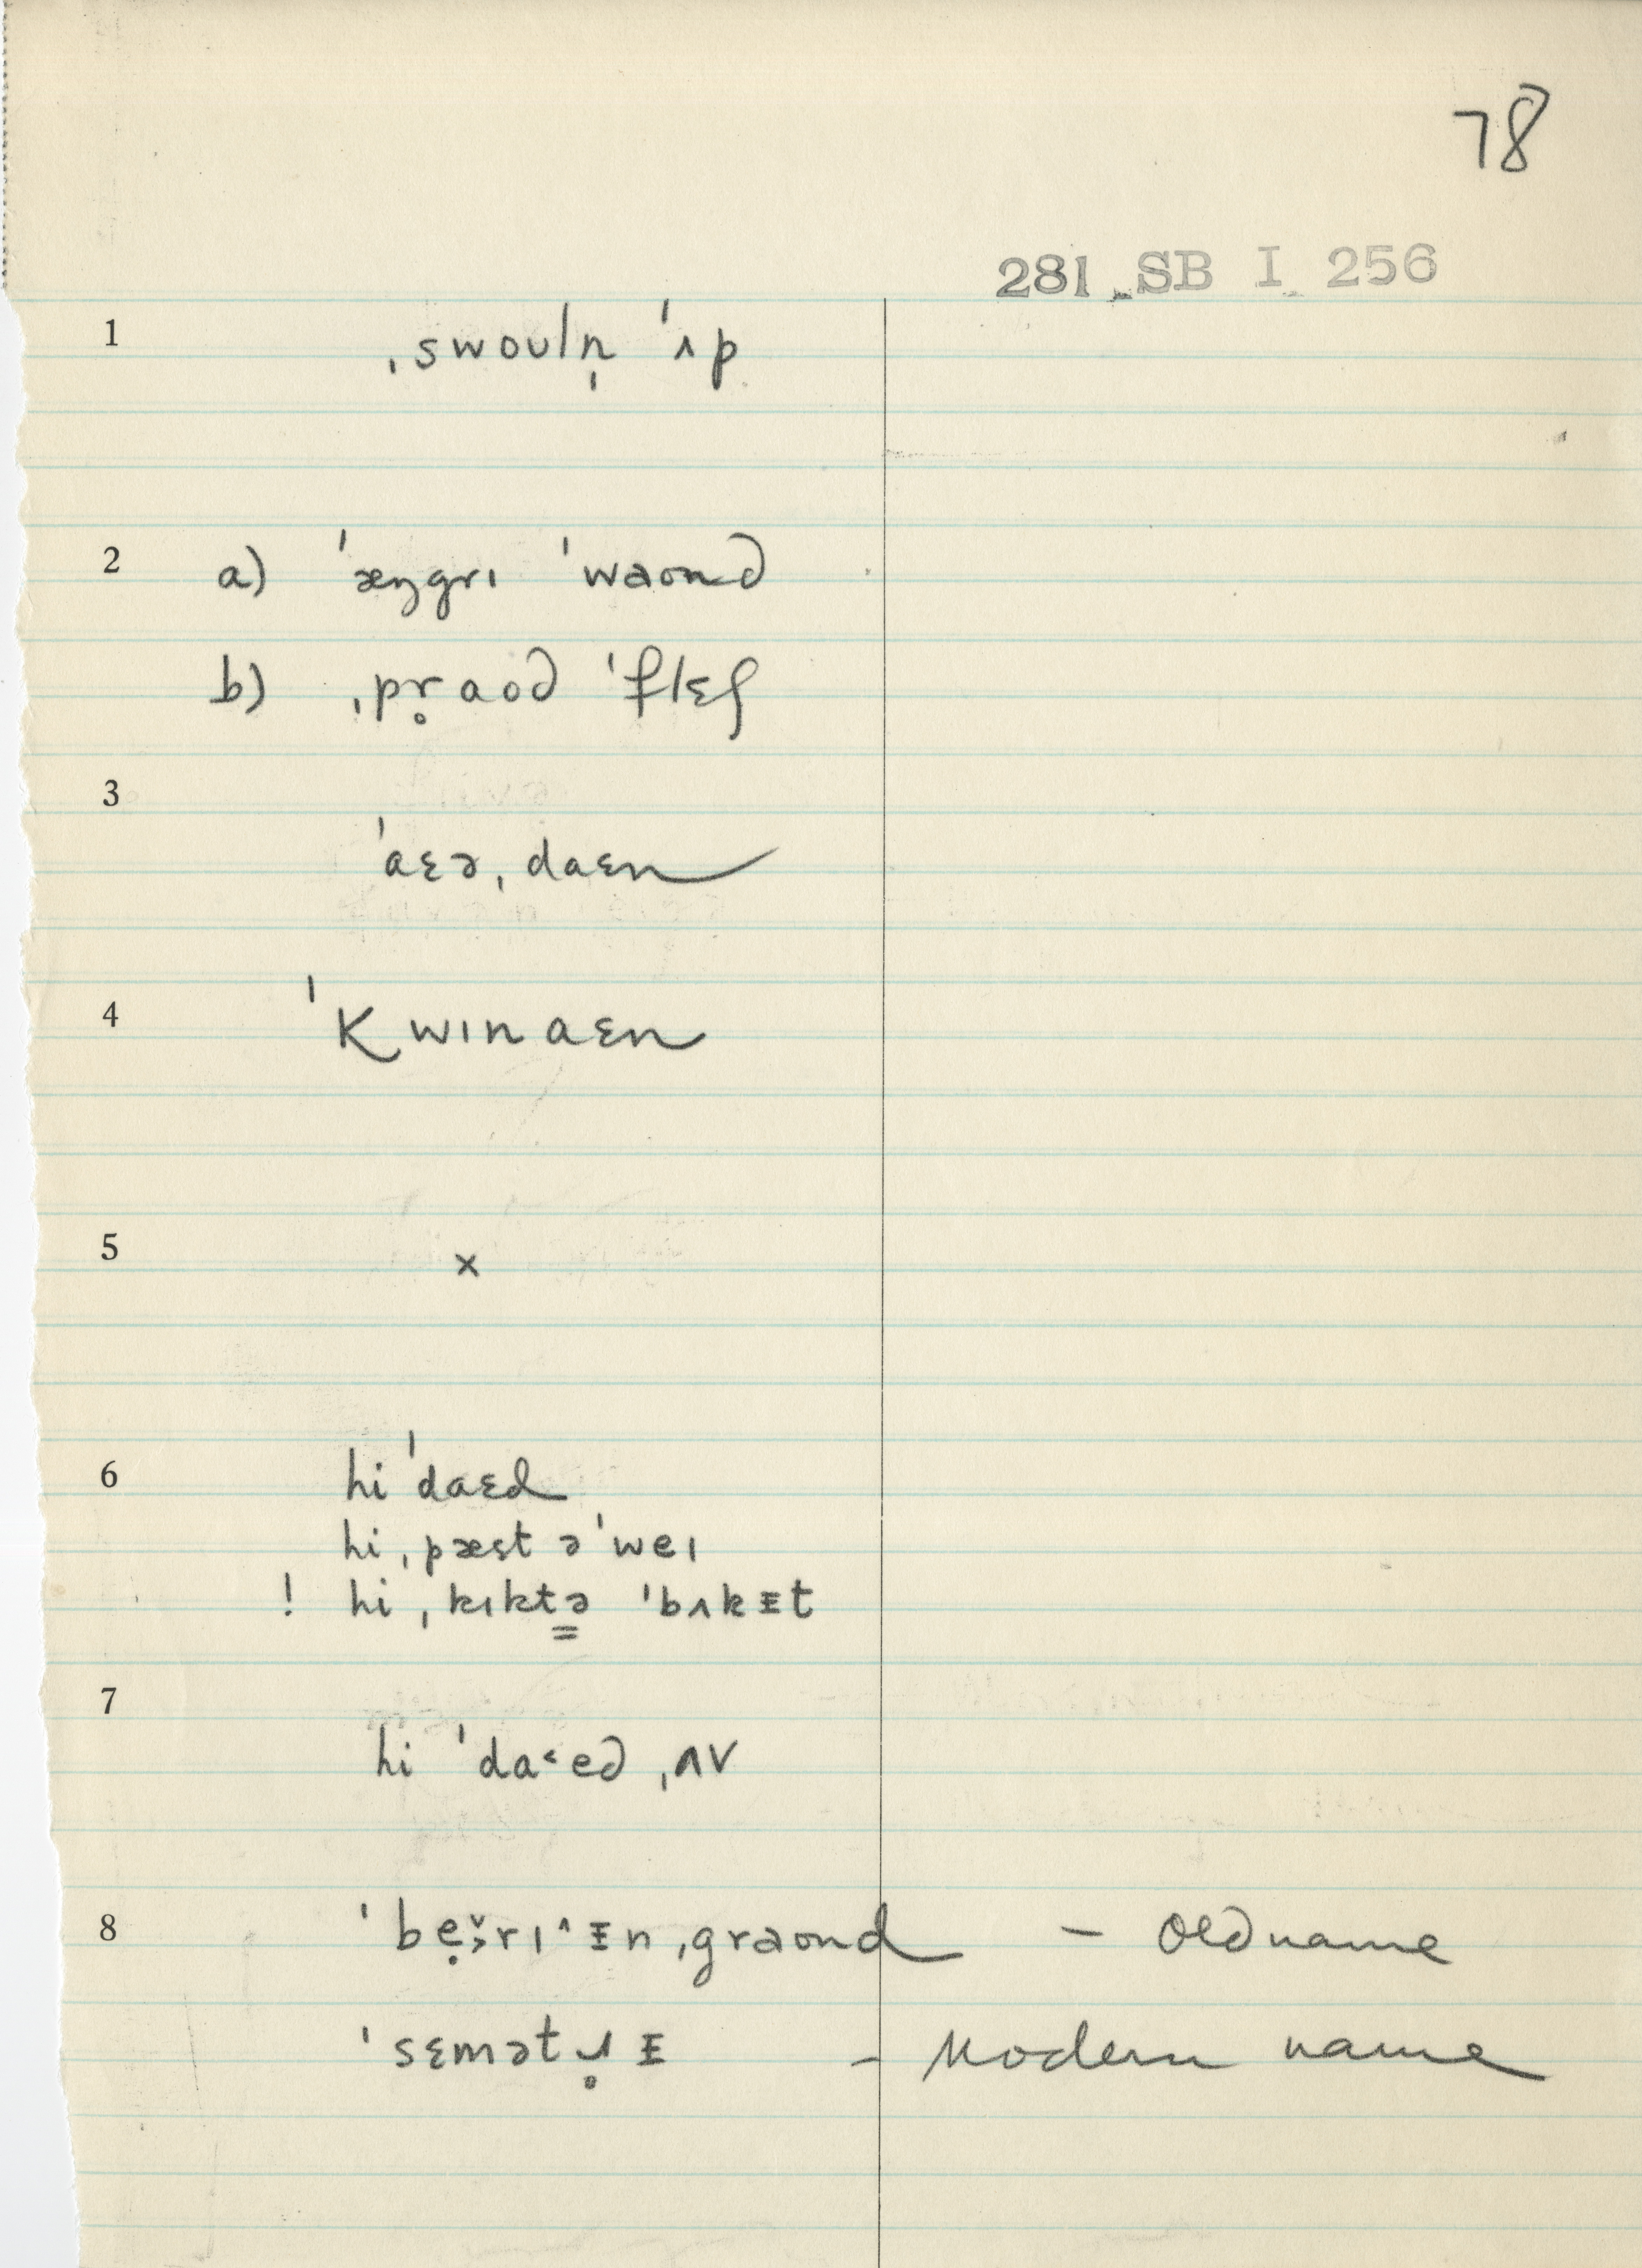 78
281 SB I 256
1 ˌswoʊln̩ ˈʌp
2 a) ˈæŋgrɪ ˈwaʊnd
b) ˌpr̥aʊd ˈflɛʃ
3
ˈaɛəˌdaɛn
4 ˈkwɪnaɛn
5 ×
6 hi ˈdaɛd
hi ˌpæst ə ˈweɪ
! hi ˌkɪktə ˈbʌkᵻt
7
hi ˈda˂ed ˌʌv
8 ˈbẹ̌rɪ^ᵻnˌgraʊnd – Old name
ˈsɛmətɹ̥ᵻ – Modern name